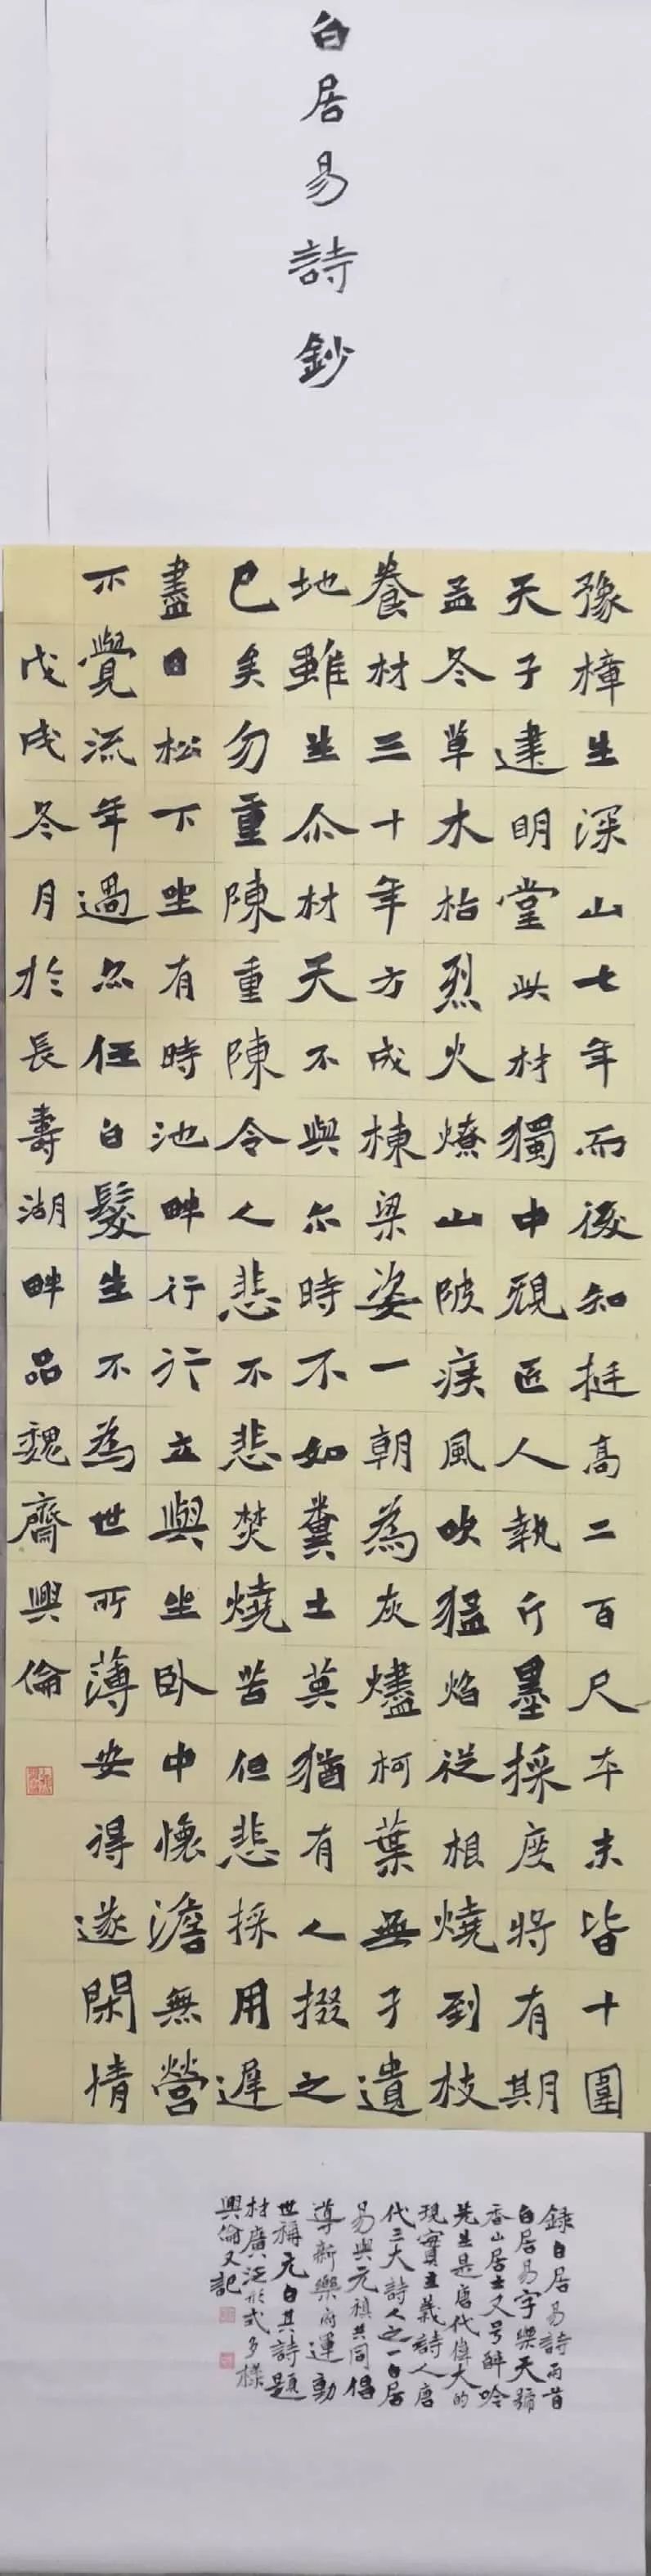 白居易詩鈔
豫樟生深山七年而後知挺高二百尺本末皆十圍
天子建明堂此材獨中規匠人執斤墨採度將有期
孟冬草木枯烈火燎山陂疾風吹猛焰從根燒到枝
養材三十年方成棟梁姿一朝為灰燼柯葉無孑遺
地雖生尒材天不與尒時不如糞土英猶有人掇之
已矣勿重陳重陳令人悲不悲焚燒苦但悲採用遲
盡日松下坐有時池畔行行立與坐臥中懷澹無營
不覺流年過亦任白髮生不為世所薄安得遂閑情
戊戌冬月於長壽湖畔品魏齋興倫
録白居易詩兩首
白居易字樂天號
香山居士又号醉吟
先生是唐代偉大的
現實主義詩人唐
代三大詩人之一白居
易與元稹共同倡
導新樂府運動
世稱元白其詩題
材廣泛形式多樣
興倫又記